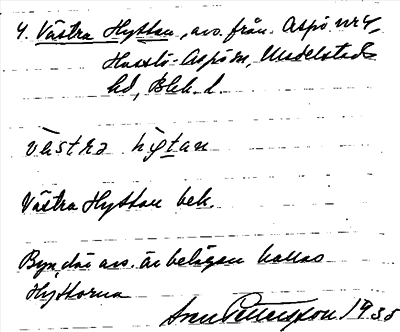 4. Västra Hyttan, avs. från Aspö nr 4,
Hasslö-Aspö sn, Medelstads
hd, Blek. l.
västra hytan
Västra Hyttan bek.
Byn, där avs. är belägen kallas
Hyttorna
Sven Pettersson 1935